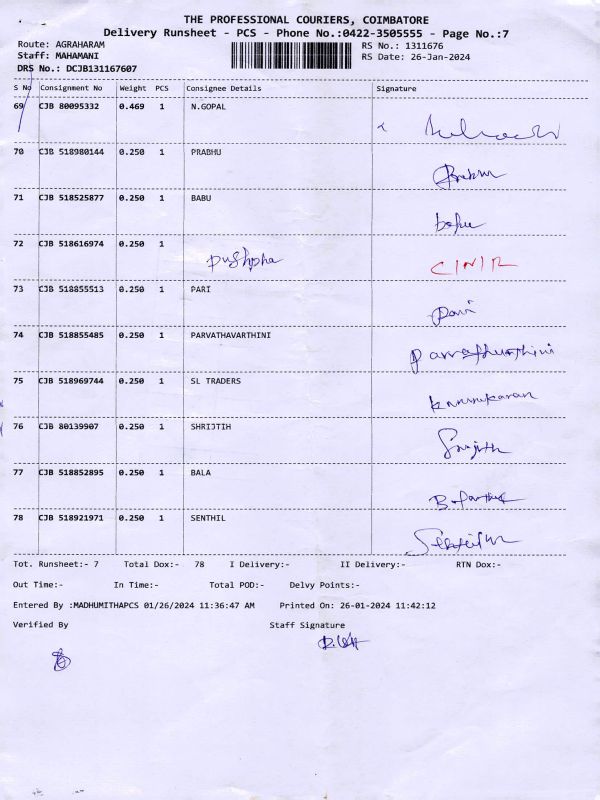 THE PROFESSIONAL COURIERS, COIMBATORE
Delivery Runsheet - PCS - Phone No.:0422-3505555 - Page No.:7
Route: AGRAHARAM RS No.: 1311676
Staff: MAHAMANI RS Date: 26-Jan-2024
DRS No.: DCJB131167607
S No Consignment No Weight PCS Consignee Details Signature
69 CJB 80095332 0.469 1 N.GOPAL
70 CJB 518980144 0.250 1 PRABHU
71 CJB 518525877 0.250 1 BABU
72 CJB 518616974 0.250 1 Pushpha
73 CJB 518855513 0.250 1 PARI Pari
74 CJB 518855485 0.250 1 PARVATHAVARTHINI
75 CJB 518969744 0.250 1 SL TRADERS
76 CJB 80139907 0.250 1 SHRIJTIH
77 CJB 518852895 0.250 1 BALA
78 CJB 518921971 0.250 1 SENTHIL
Tot. Runsheet:- 7 Total Dox:- 78 I Delivery:- II Delivery:- RTN Dox:-
Out Time:- In Time:- Total POD:- Delvy Points:-
Entered By :MADHUMITHAPCS 01/26/2024 11:36:47 AM Printed On: 26-01-2024 11:42:12
Verified By Staff Signature